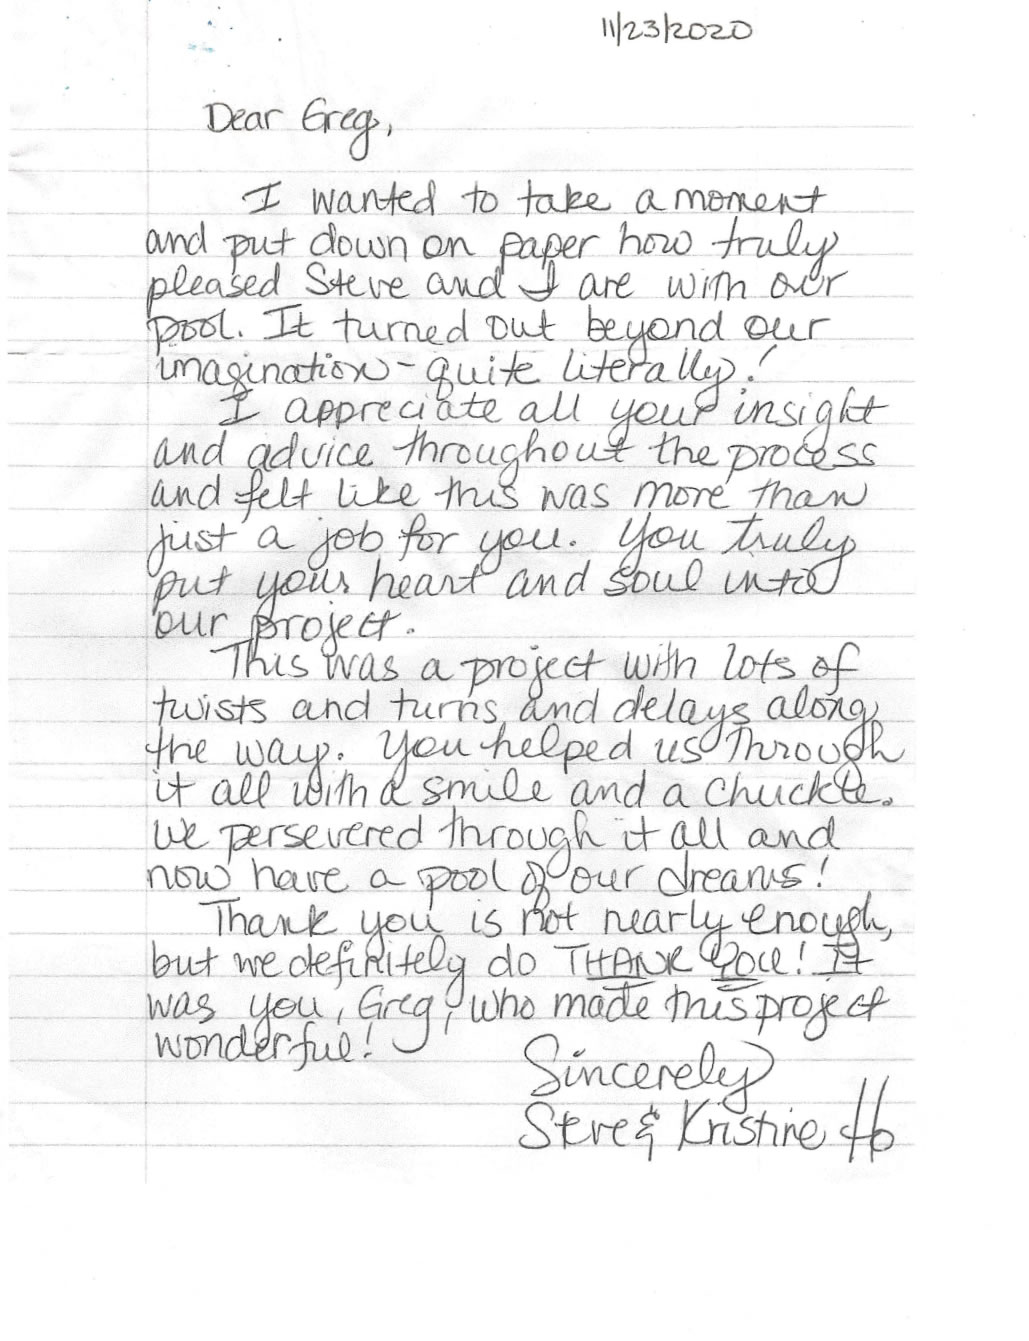 11/23/2020
Dear Greg,
I wanted to take a moment
and put down on paper how truly
pleased Steve and I are with our
pool. It turned out beyond our
imagination - quite literally!
I appreciate all your insight
and advice throughout the process
and felt like this was more than
just a job for you. You truly
put your heart and soul into
our project.
This was a project with lots of
twists and turns and delays along
the way. You helped us through
it all with a smile and a chuckle.
We persevered through it all and
now have a pool of our dreams!
Thank you is not nearly enough,
but we definitely do THANK YOU! It
was you, Greg, who made this project
wonderful!
Sincerely
Steve & Kristine Ho